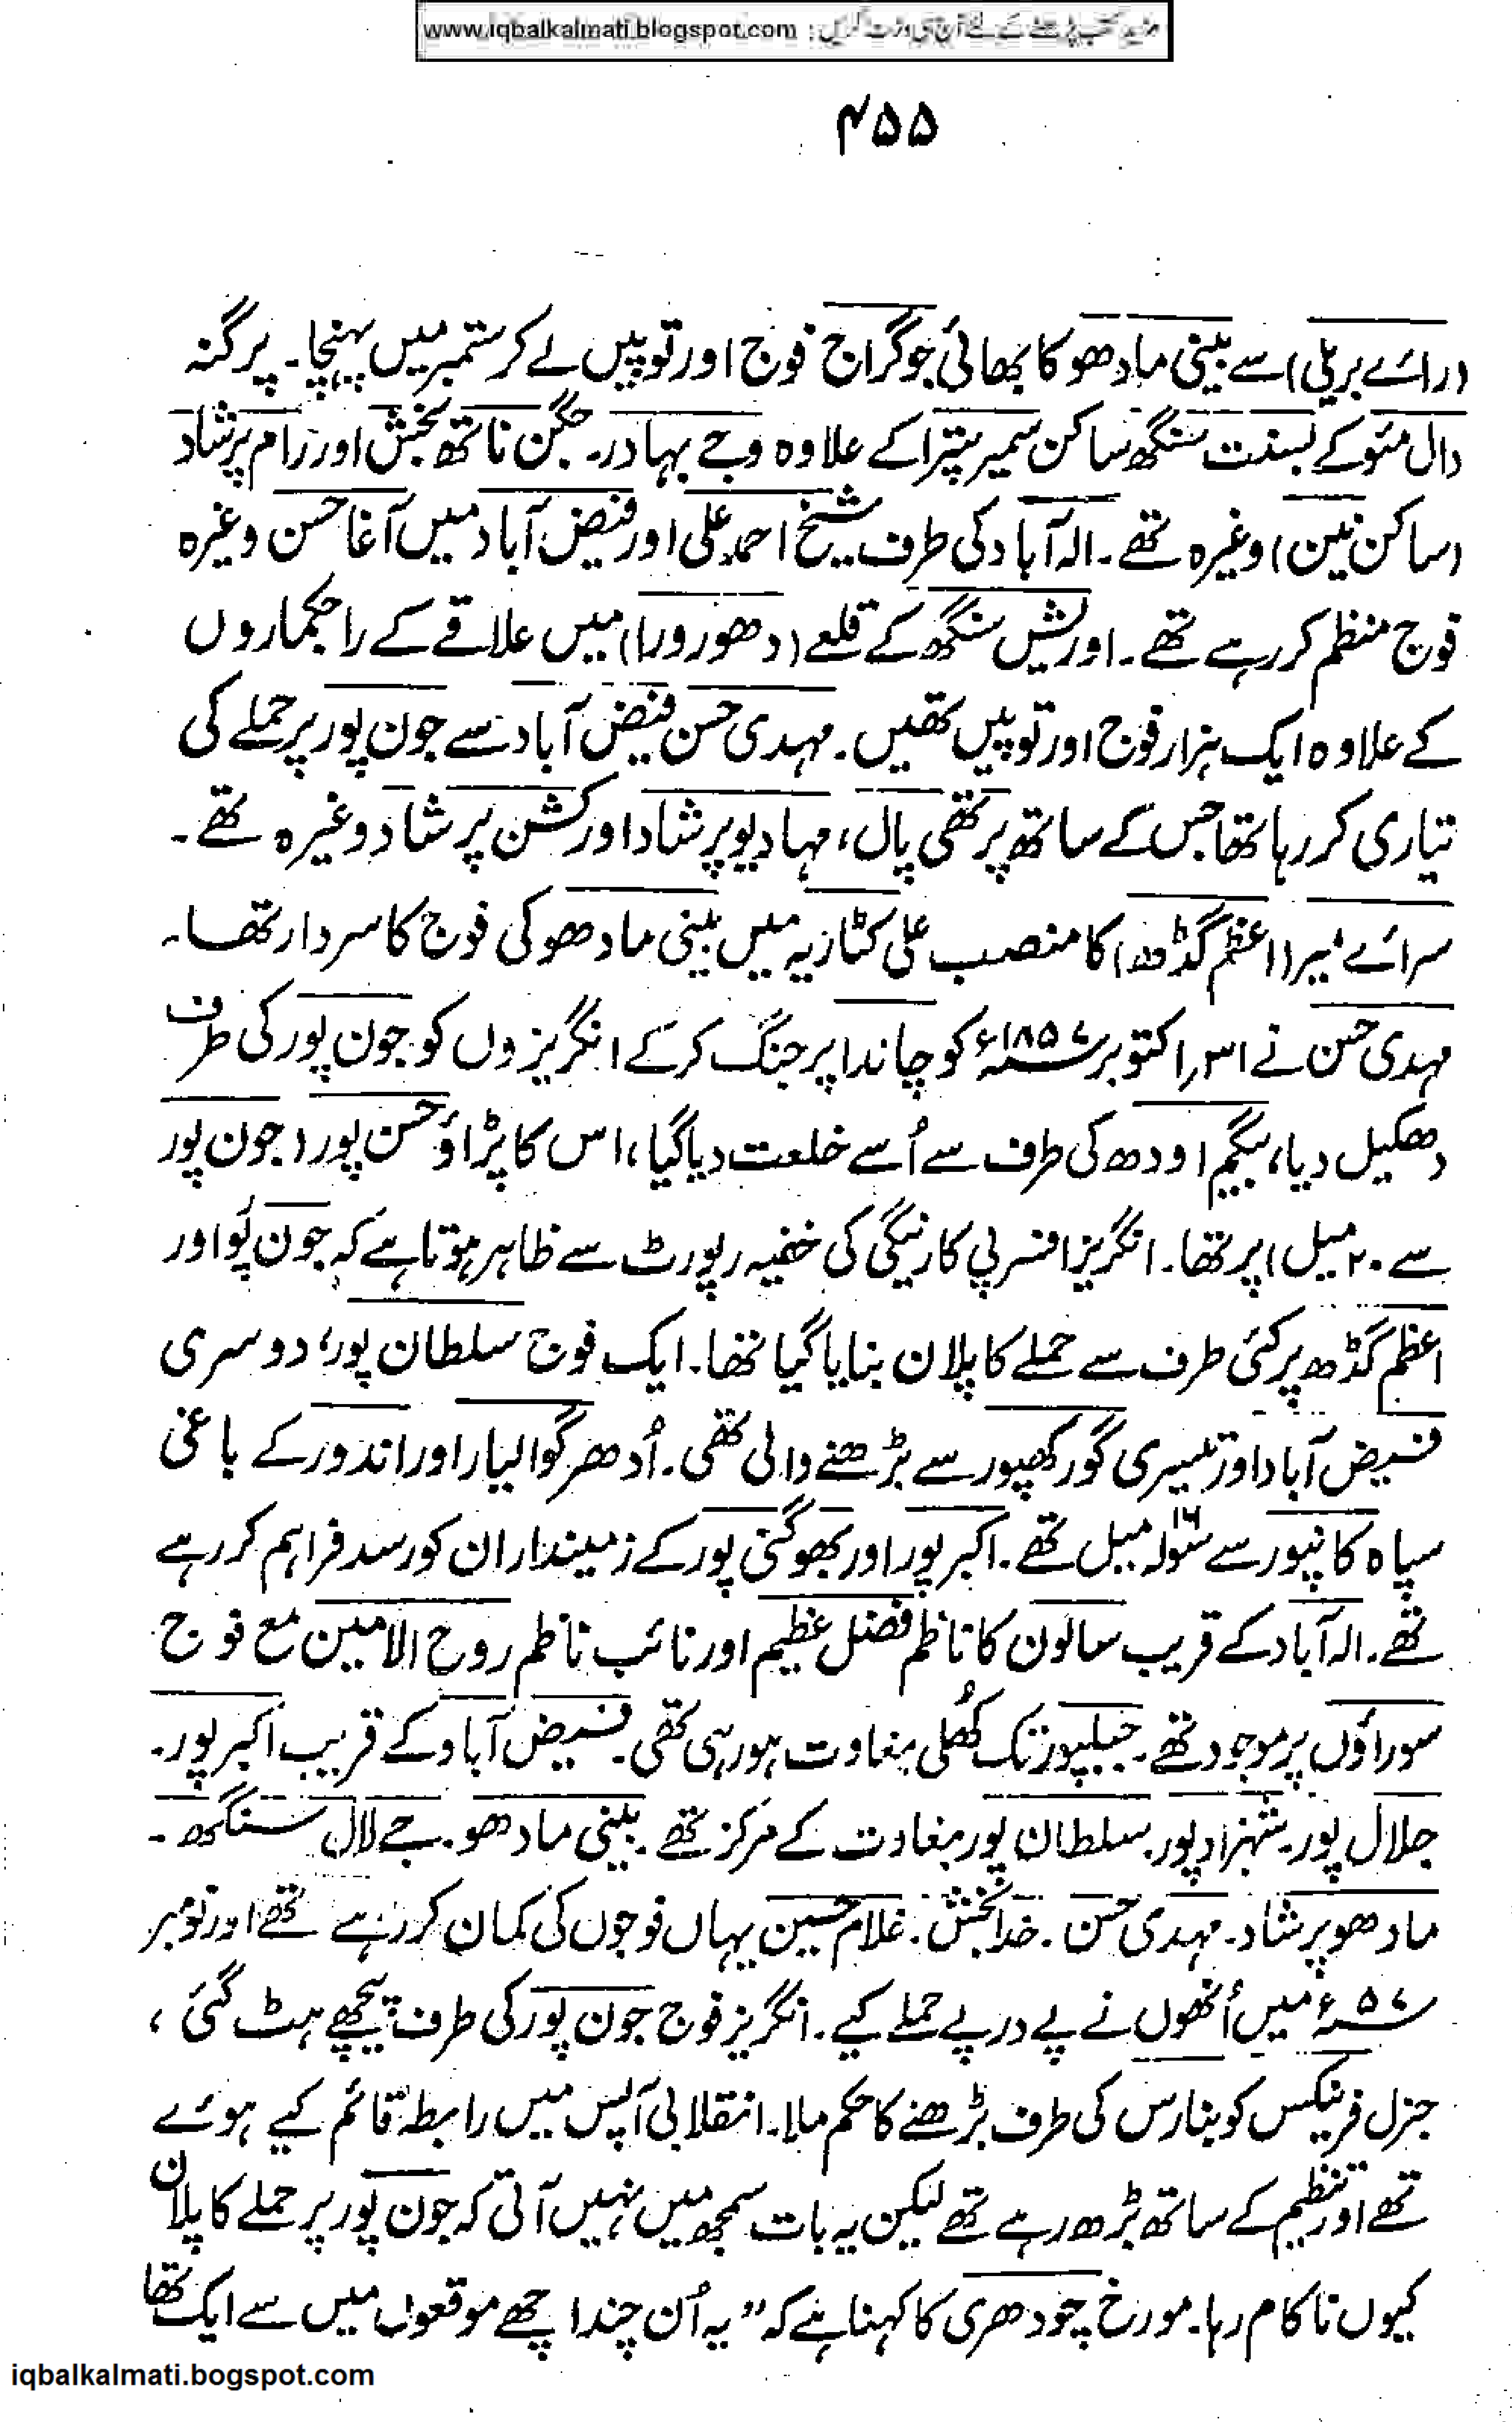 مزید کتب پڑھنے کے لئے آج ہی وزٹ کریں : www.iqbalkalmati.blogspot.com
۴۵۵
(رائے بریلی) سے بینی مادھو کا بھائی جوگراج فوج اور توپیں لے کر ستمبر میں پہنچا۔ پرگنہ
دال مئو کے بسنت سنگھ ساکن سمیرپترا کے علاوہ وجے بہادر۔ جگن ناتھ بخش اور رام پرشاد
(ساکن نین) وغیرہ تھے۔ الہ آباد کی طرف شیخ احمد علی اور فیض آباد میں آغا حسن وغیرہ
فوج منظم کر رہے تھے۔ اوریش سنگھ کے قلعے (دھورورا) میں علاقے کے راجکماروں
کے علاوہ ایک ہزار فوج اور توپیں تھیں۔ مہدی حسن فیض آباد سے جون پور پر حملے کی
تیاری کر رہا تھا جس کے ساتھ پرتھی پال، مہادیو پرشاد اور کشن پرشاد وغیرہ تھے۔
سرائے میر (اعظم گڈھ) کا منصب علی کٹاریہ میں بینی مادھو کی فوج کا سردار تھا۔
مہدی حسن نے ۳۱؍ اکتوبر ۱۸۵۷ء کو چاندا پر جنگ کر کے انگریزوں کو جون پور کی طرف
دھکیل دیا، بیگم اودھ کی طرف سے اُسے خلعت دیا گیا، اس کا پڑاؤ حسن پور (جون پور
سے ۲۰ میل) پر تھا۔ انگریز افسر پی کارنیگی کی خفیہ رپورٹ سے ظاہر ہوتا ہے کہ جون پو اور
اعظم گڈھ پر کئی طرف سے حملے کا پلان بنایا گیا تھا۔ ایک فوج سلطان پور، دوسری
فیض آباد اور تیسری گورکھپور سے بڑھنے والی تھی۔ اُدھر گوالیار اور اندور کے باغی
سپاہ کانپور سے سولہ ۱۶ میل تھے۔ اکبر پور اور بھوگنی پور کے زمیندار ان کو رسد فراہم کر رہے
تھے۔ الہ آباد کے قریب سالون کا ناظم فضل عظیم اور نائب ناظم روح الامین مع فوج
سوراؤں پر موجود تھے۔ جبلپور تک کھُلی بغاوت ہو رہی تھی۔ فیض آباد کے قریب اکبر پور۔
جلال پور۔ شہزاد پور۔ سلطان پور بغاوت کے مرکز تھے۔ بینی مادھو۔ جے لال سنگھ۔
مادھو پرشاد۔ مہدی حسن۔ خدا بخش۔ غلام حسین یہاں فوجوں کی کمان کر رہے تھے اور نومبر
۵۷ء میں اُنھوں نے پے در پے حملے کیے۔ انگریز فوج جون پور کی طرف پیچھے ہٹ گئی،
جنرل فرینکس کو بنارس کی طرف بڑھنے کا حکم ملا۔ انقلابی آپس میں رابطہ قائم کیے ہوئے
تھے اور تنظیم کے ساتھ بڑھ رہے تھے لیکن یہ بات سمجھ میں نہیں آتی کہ جون پور پر حملے کا پلان
کیوں ناکام رہا۔ مورخ چودھری کا کہنا ہے کہ ”یہ اُن چند اچھے موقعوں میں سے ایک تھا
iqbalkalmati.bogspot.com